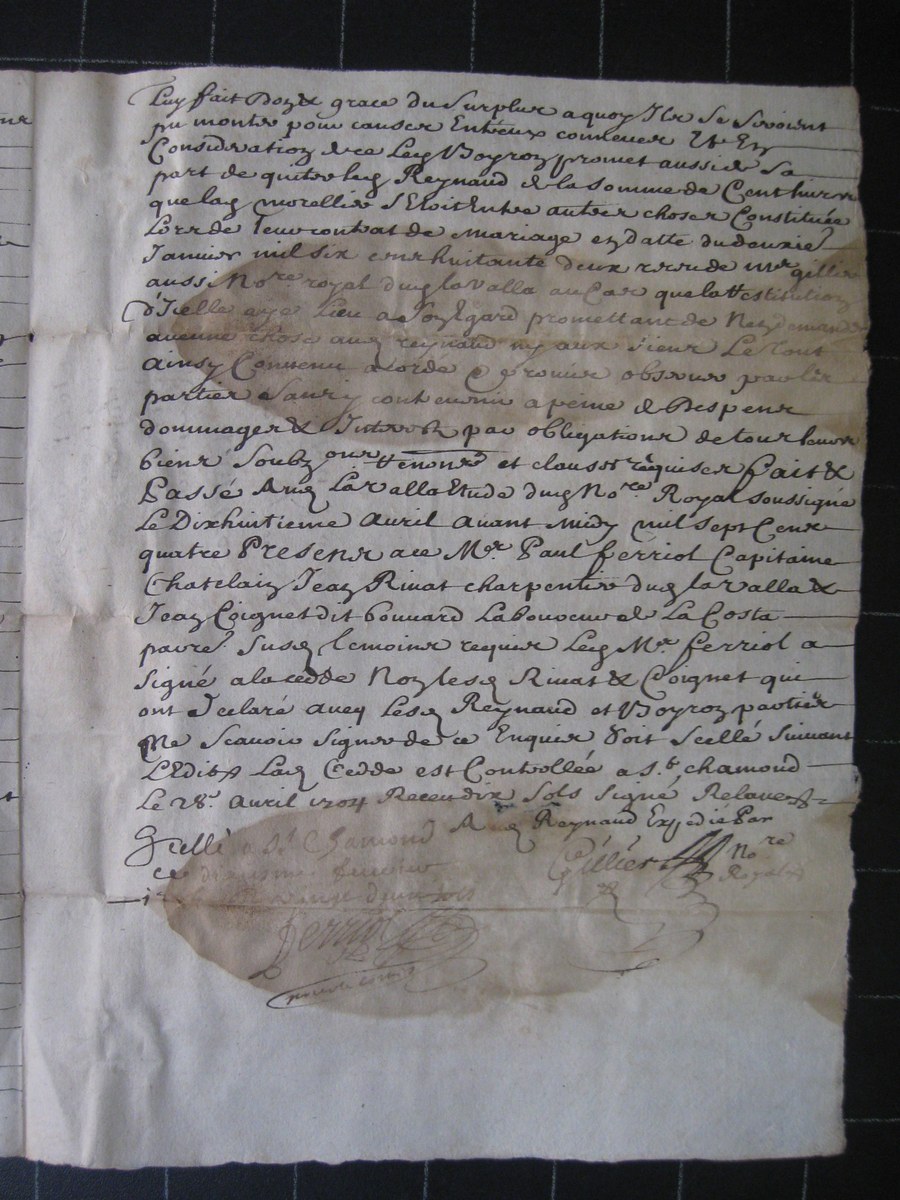 Luy fait Don & grace du Surplus a quoy Ils Se Seroient
pu monter pour causer Entreux convenues Et En
Consideration de ce Led Boyron promet aussi de Sa
part de quiter led Reynaud de la Somme de Cent livres
que lad morellier S'Etoit Entre autres choses Constituée
Lors de leur contrat de mariage en datte du deuxie
Janvier mil six cens huitante deux receu de Mre gillier
aussi Nore royal dud lavalla au Cas que la Restitution
d'Icelle aye Lieu a Son Egard promettant de N'en deman
aucune chose aud reynaud ny aux Siens Le tout
ainsy Convenu acordé & promis observer par les
parties Sans y contrevenir a peine de Despens
dommages & Interets par obligations de tous leurs
biens Soubz renoncé et clauses requises Fait &
Passé Aud Lavalla Etude dud Nore Royal soussigné
Le Dixhuitieme Avril avant midy mil sept Cens
quatre Presens a ce Mre Paul ferriol Capitaine
Chatelain Jean Rivat charpentier dud lavalla &
Jean Coignet dit bonnard Laboureur de La Costa
parre Susd temoins requis Led Mre ferriol a
Signé a la cedde Non lesd Rivat & Coignet qui
ont Declaré avec Lesd Reynaud et Boyron parties
Ne Scavoir Signer de ce Enquis Soit Scellé Suivant
L'Edit & Lad Cedde est Controllée a St chamond
Le 28e Avril 1704 Receu dix Sols Signé
Aud Reynaud Expedié Par
Scellé a St Chamond
ce
Gillier Nore
Royal